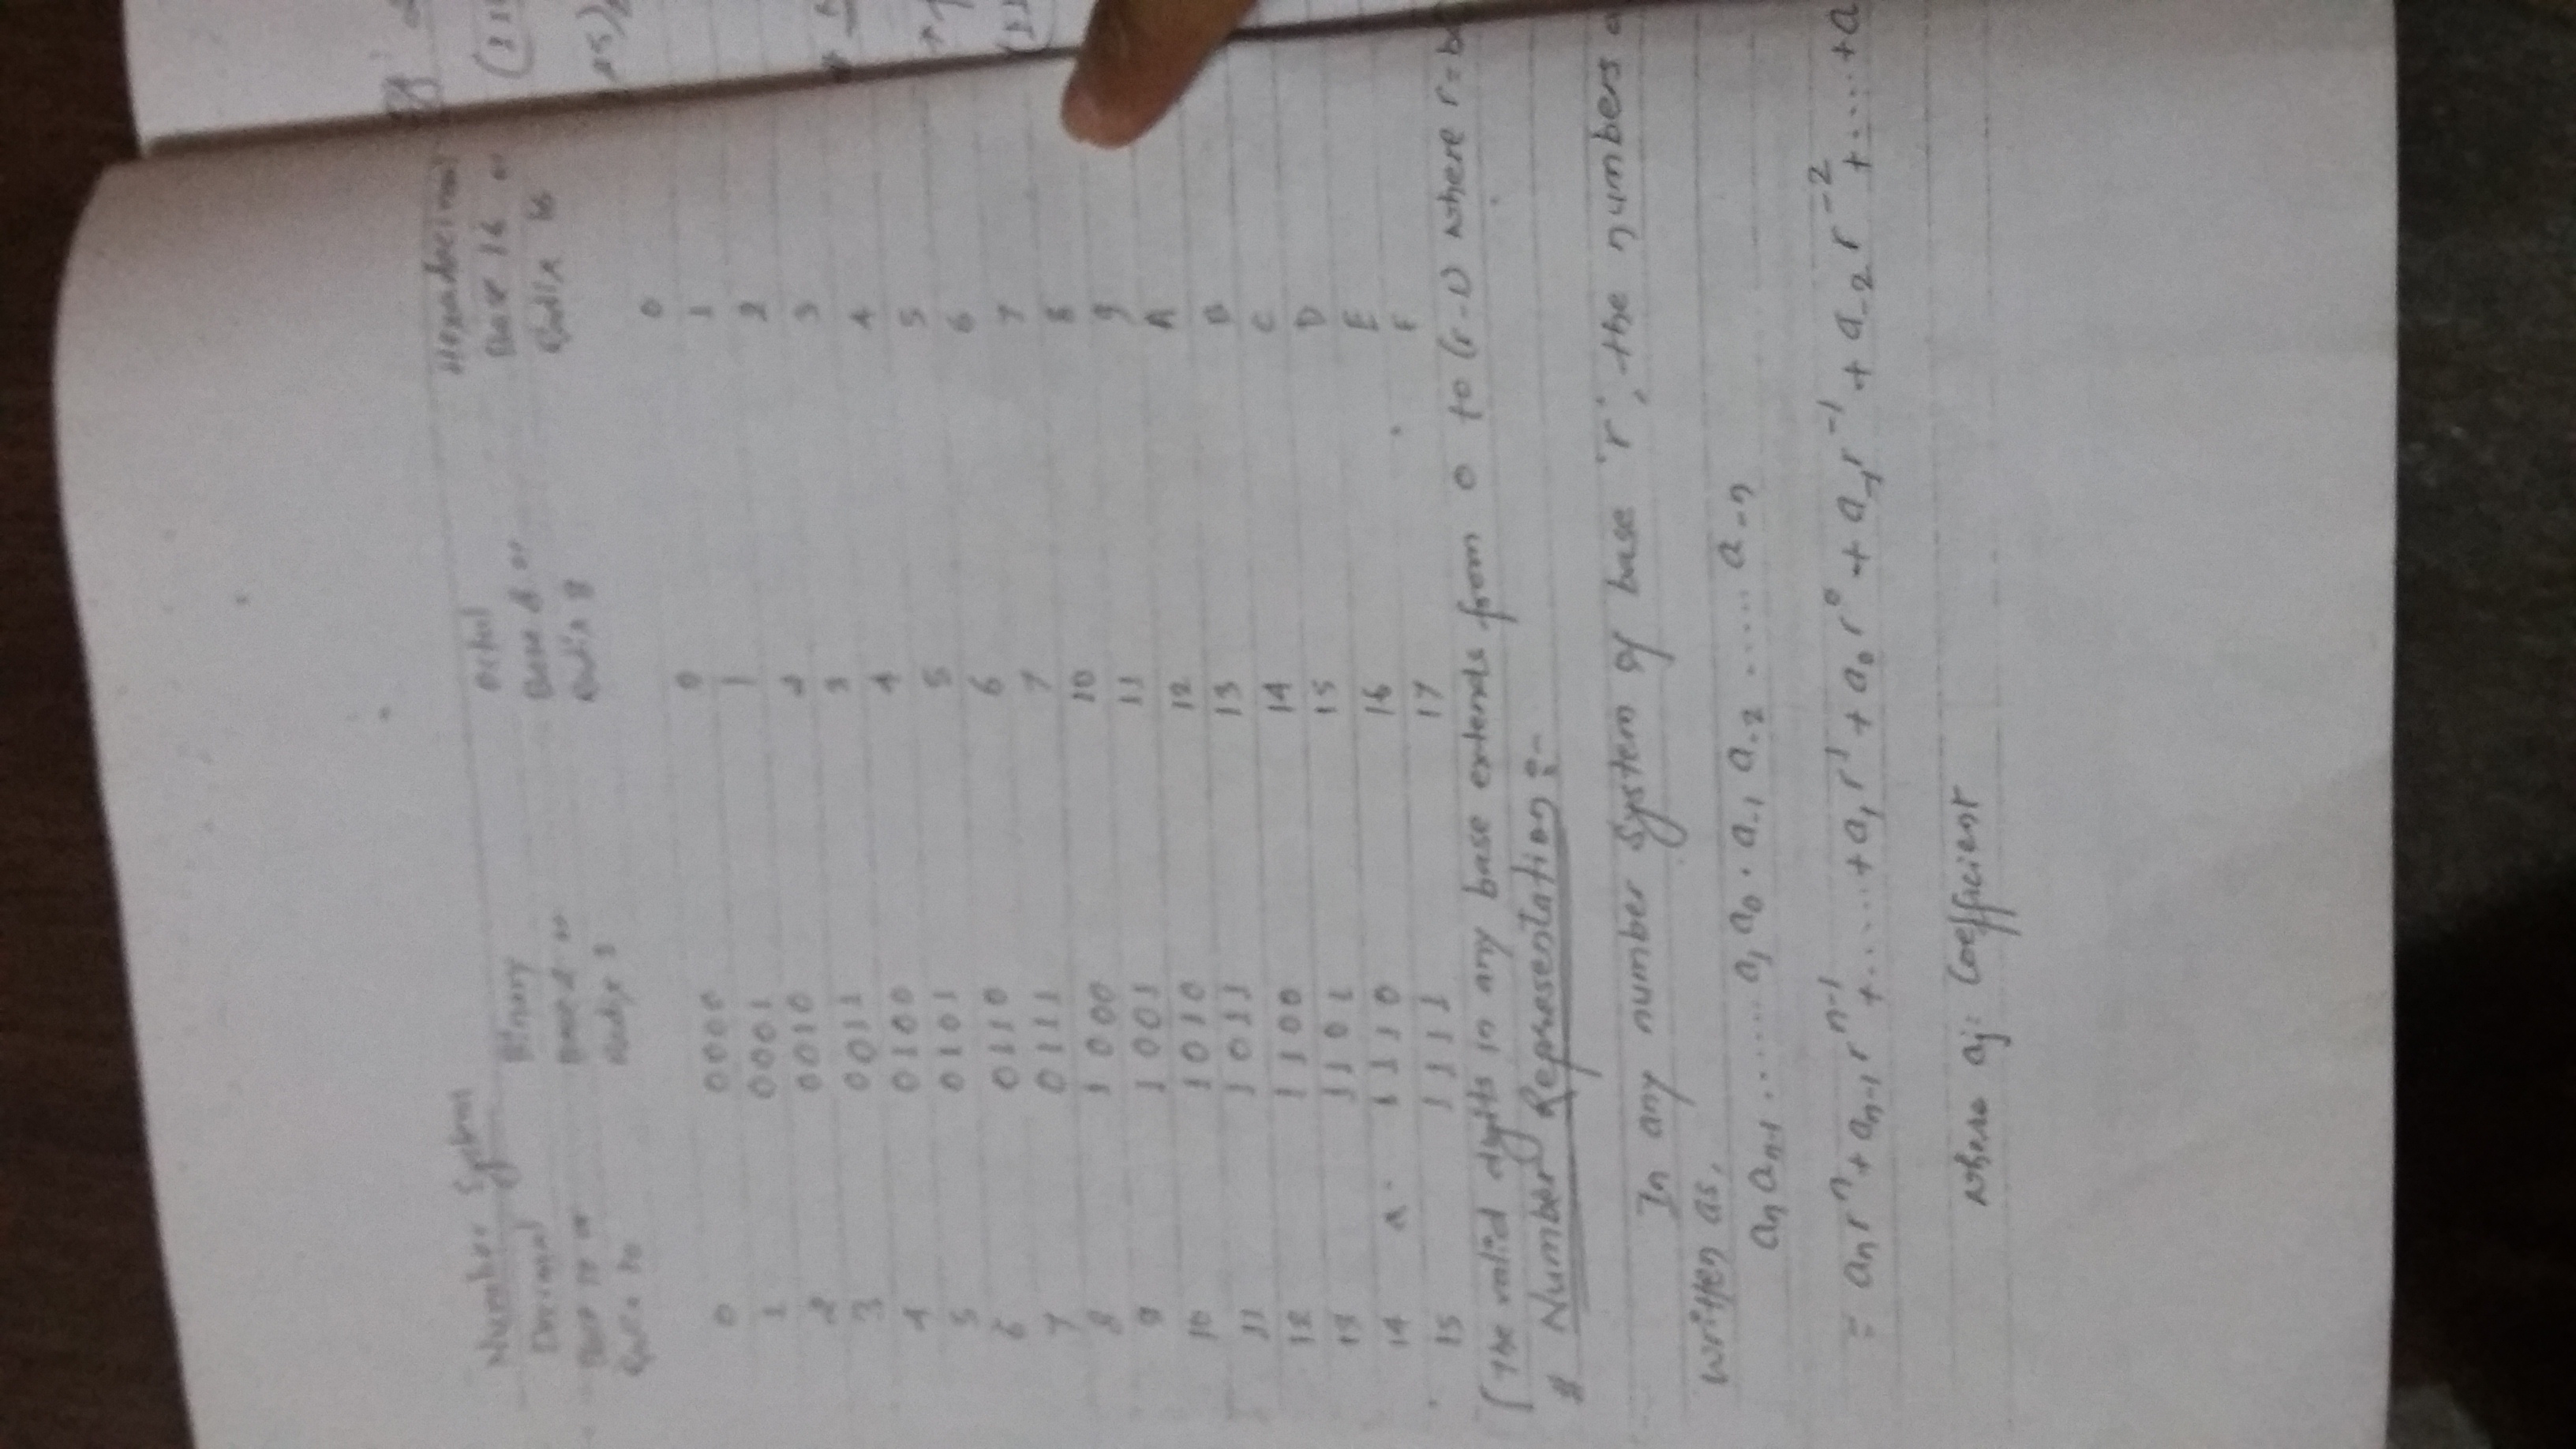 Number System
Decimal Binary Octal Hexadecimal
Base 10 or Base 2 or Base 8 or Base 16 or
Radix 10 Radix 2 Radix 8 Radix 16
0 0000 0 0
1 0001 1 1
2 0010 2 2
3 0011 3 3
4 0100 4 4
5 0101 5 5
6 0110 6 6
7 0111 7 7
8 1000 10 8
9 1001 11 9
10 1010 12 A
11 1011 13 B
12 1100 14 C
13 1101 15 D
14 1110 16 E
15 1111 17 F
[The valid digits in any base extends from 0 to (r-1) where r=
# Number Representation :-
In any number system of base 'r', the numbers
written as,
aₙ aₙ₋₁ ...... a₁ a₀ . a₋₁ a₋₂ ..... a₋ₙ
= aₙrⁿ + aₙ₋₁rⁿ⁻¹ + ...... + a₁r¹ + a₀r⁰ + a₋₁r⁻¹ + a₋₂r⁻² + ..... + a
where aⱼ: Coefficient